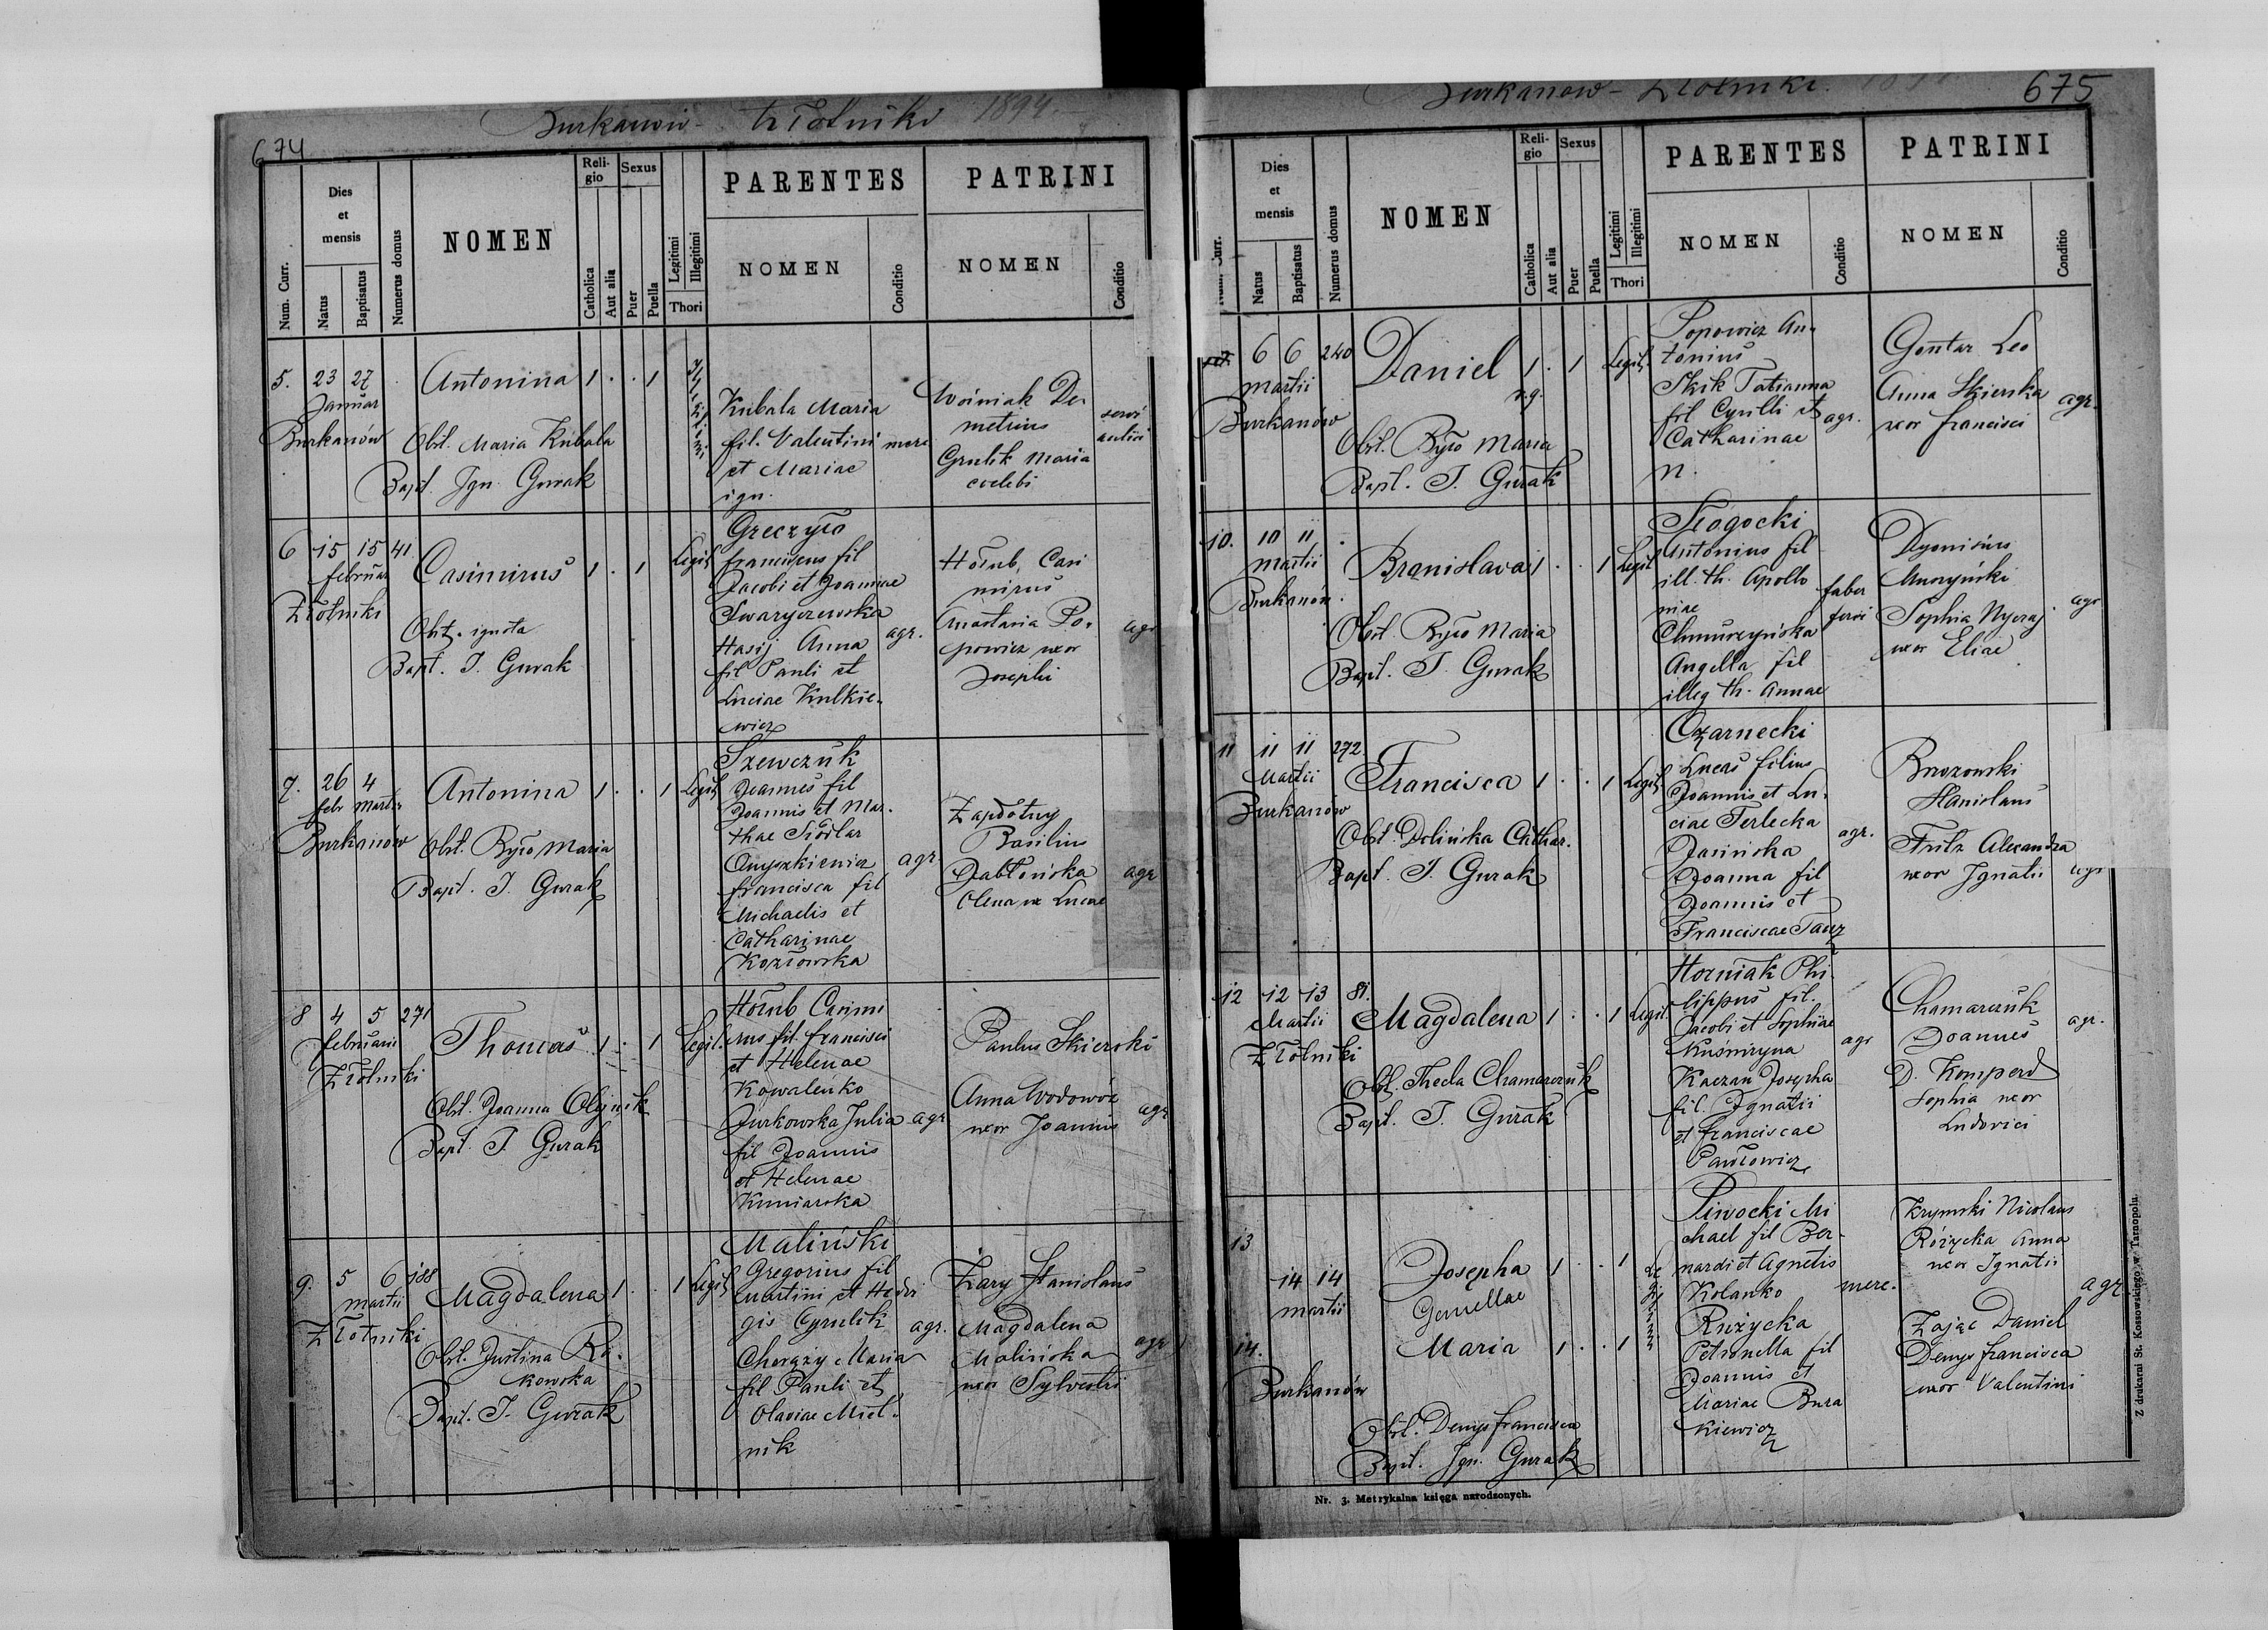 674
Burkanów - Złotniki 1894
Num. Curr.
Dies et mensis
Natus
Baptisatus
Numerus domus
NOMEN
Religio
Catholica
Aut alia
Sexus
Puer
Puella
Legitimi
Illegitimi
Thori
PARENTES
NOMEN
Conditio
PATRINI
NOMEN
Conditio
5. 23 27 Antonina 1 . . 1
Januar
Burkanów
Obst. Maria Kubala
Bapt. Ign. Gurak
Kubala Maria
fil. Valentini merc
et Mariae
ign.
Woźniak De-
metrius
Grulik Maria
coelebi
servi
aulici
6 15 15 41 Casimirus 1 . 1 Legit
februar
Złotniki
Obst. ignota
Bapt. I. Gurak
Greczyło
franciscus fil
Jacobi et Joannae
Swaryczewska
Hasij Anna agr.
fil Pauli et
Luciae Kulkie-
wicz
Hołub, Casi
mirus
Anastasia Po-
powicz uxor
Josephi
agr
7. 26 4 Antonina 1 . . 1 Legit
febr Martii
Burkanów
Obst. Było Maria
Bapt. I. Gurak
Szewczuk
Joannes fil
Joannis et Mar-
thae Siodlar
Onyszkiewicz agr.
francisca fil
Michaelis et
Catharinae
Kozłowska
Zapdotny
Basilius
Jabłońska
Olena ux Lucae
agr
8 4 5 271 Thomas 1 . 1 Legit.
februarii
Złotniki
Obst. Joanna Olijnik
Bapt. I. Gurak
Hołub Casimi
rus fil. francisci
et Helenae
Kowalenko
Jurkowska Julia agr
fil Joannis
et Helenae
Kuniarska
Paulus Skierski
Anna Wodowóz
uxor Joannis
agr
9. 5 6 188 Magdalena 1 . . 1 Legit
martii
Złotniki
Obst. Justina Ra-
kowska
Bapt. I. Gurak
Maliński
Gregorius fil
Martini et Hedvi
gis Cyrulik agr.
Chorąży Maria
fil Pauli et
Olaviae Miel-
nik
Żary Stanislaus
Magdalena
Malińska
uxor Sylvestri
agr
675
Burkanow - Złotniki.
Num. Curr.
Dies et mensis
Natus
Baptisatus
Numerus domus
NOMEN
Religio
Catholica
Aut alia
Sexus
Puer
Puella
Legitimi
Illegitimi
Thori
PARENTES
NOMEN
Conditio
PATRINI
NOMEN
Conditio
6 6 240 Daniel 1 . 1 Legit.
martii
Burkanów
Obst. Było Maria
Bapt. I. Gurak
Popowicz An-
tonius
Skik Tatianna
fil Cyrilli et agr.
Catharinae
n.
Gontar Leo
Anna Skierska
uxor francisci
agr.
10. 10 11 Branislava 1 . . 1 Legit
martii
Burkanów.
Obst. Było Maria
Bapt. I. Gurak
Antonius fil
ill. th. Apollo
niae
Chmurzyńska
Angella fil
illeg th. Annae
faber
ferri
Dyonisius
Muszyński
Sophia Nyczaj
uxor Eliae
agr
11 11 11 272 Francisca 1 . . 1 Legit
Martii
Burkanów
Obst. Dolińska Cathar.
Bapt. I. Gurak
Czarnecki
Lucas filius
Joannis et Lu-
ciae Terlecka
Jasińska agr.
Joanna fil
Joannis et
Franciscae Tacz
Brzozowski
Stanislaus
Fritz Alexandra
uxor Ignatii
agr
12 12 13 81. Magdalena 1 . . 1 Legit.
Martii
Złotniki
Obst. Thecla Chamarczuk
Bapt. I. Gurak
Horniak Phi
lippus fil.
Jacobi et Sophiae
Kuśniryna agr
Kaczan Josepha
fil. Ignatii
et franciscae
Pawłowicz
Chamarczuk
Joannes
D. Komperd
Sophia uxor
Ludovici
agr.
13
14 14 Josepha 1 . . 1
martii Gemellae
14. Maria 1 . . 1
Burkanów
Obst. Demys francisca
Bapt. Ign. Gurak
Piwocki Mi
chael fil Ber-
nardi et Agnetis
Kolanko merc.
Rużycka
Petronella fil
Joannis et
Mariae Bura
kiewicz
Krymski Nicolaus
Różycka Anna
uxor Ignatii
agr
Zając Daniel
Demys francisca
uxor Valentini
Nr. 3. Metrykalna księga narodzonych.
Z drukarni St. Kossowskiego w Tarnopolu.